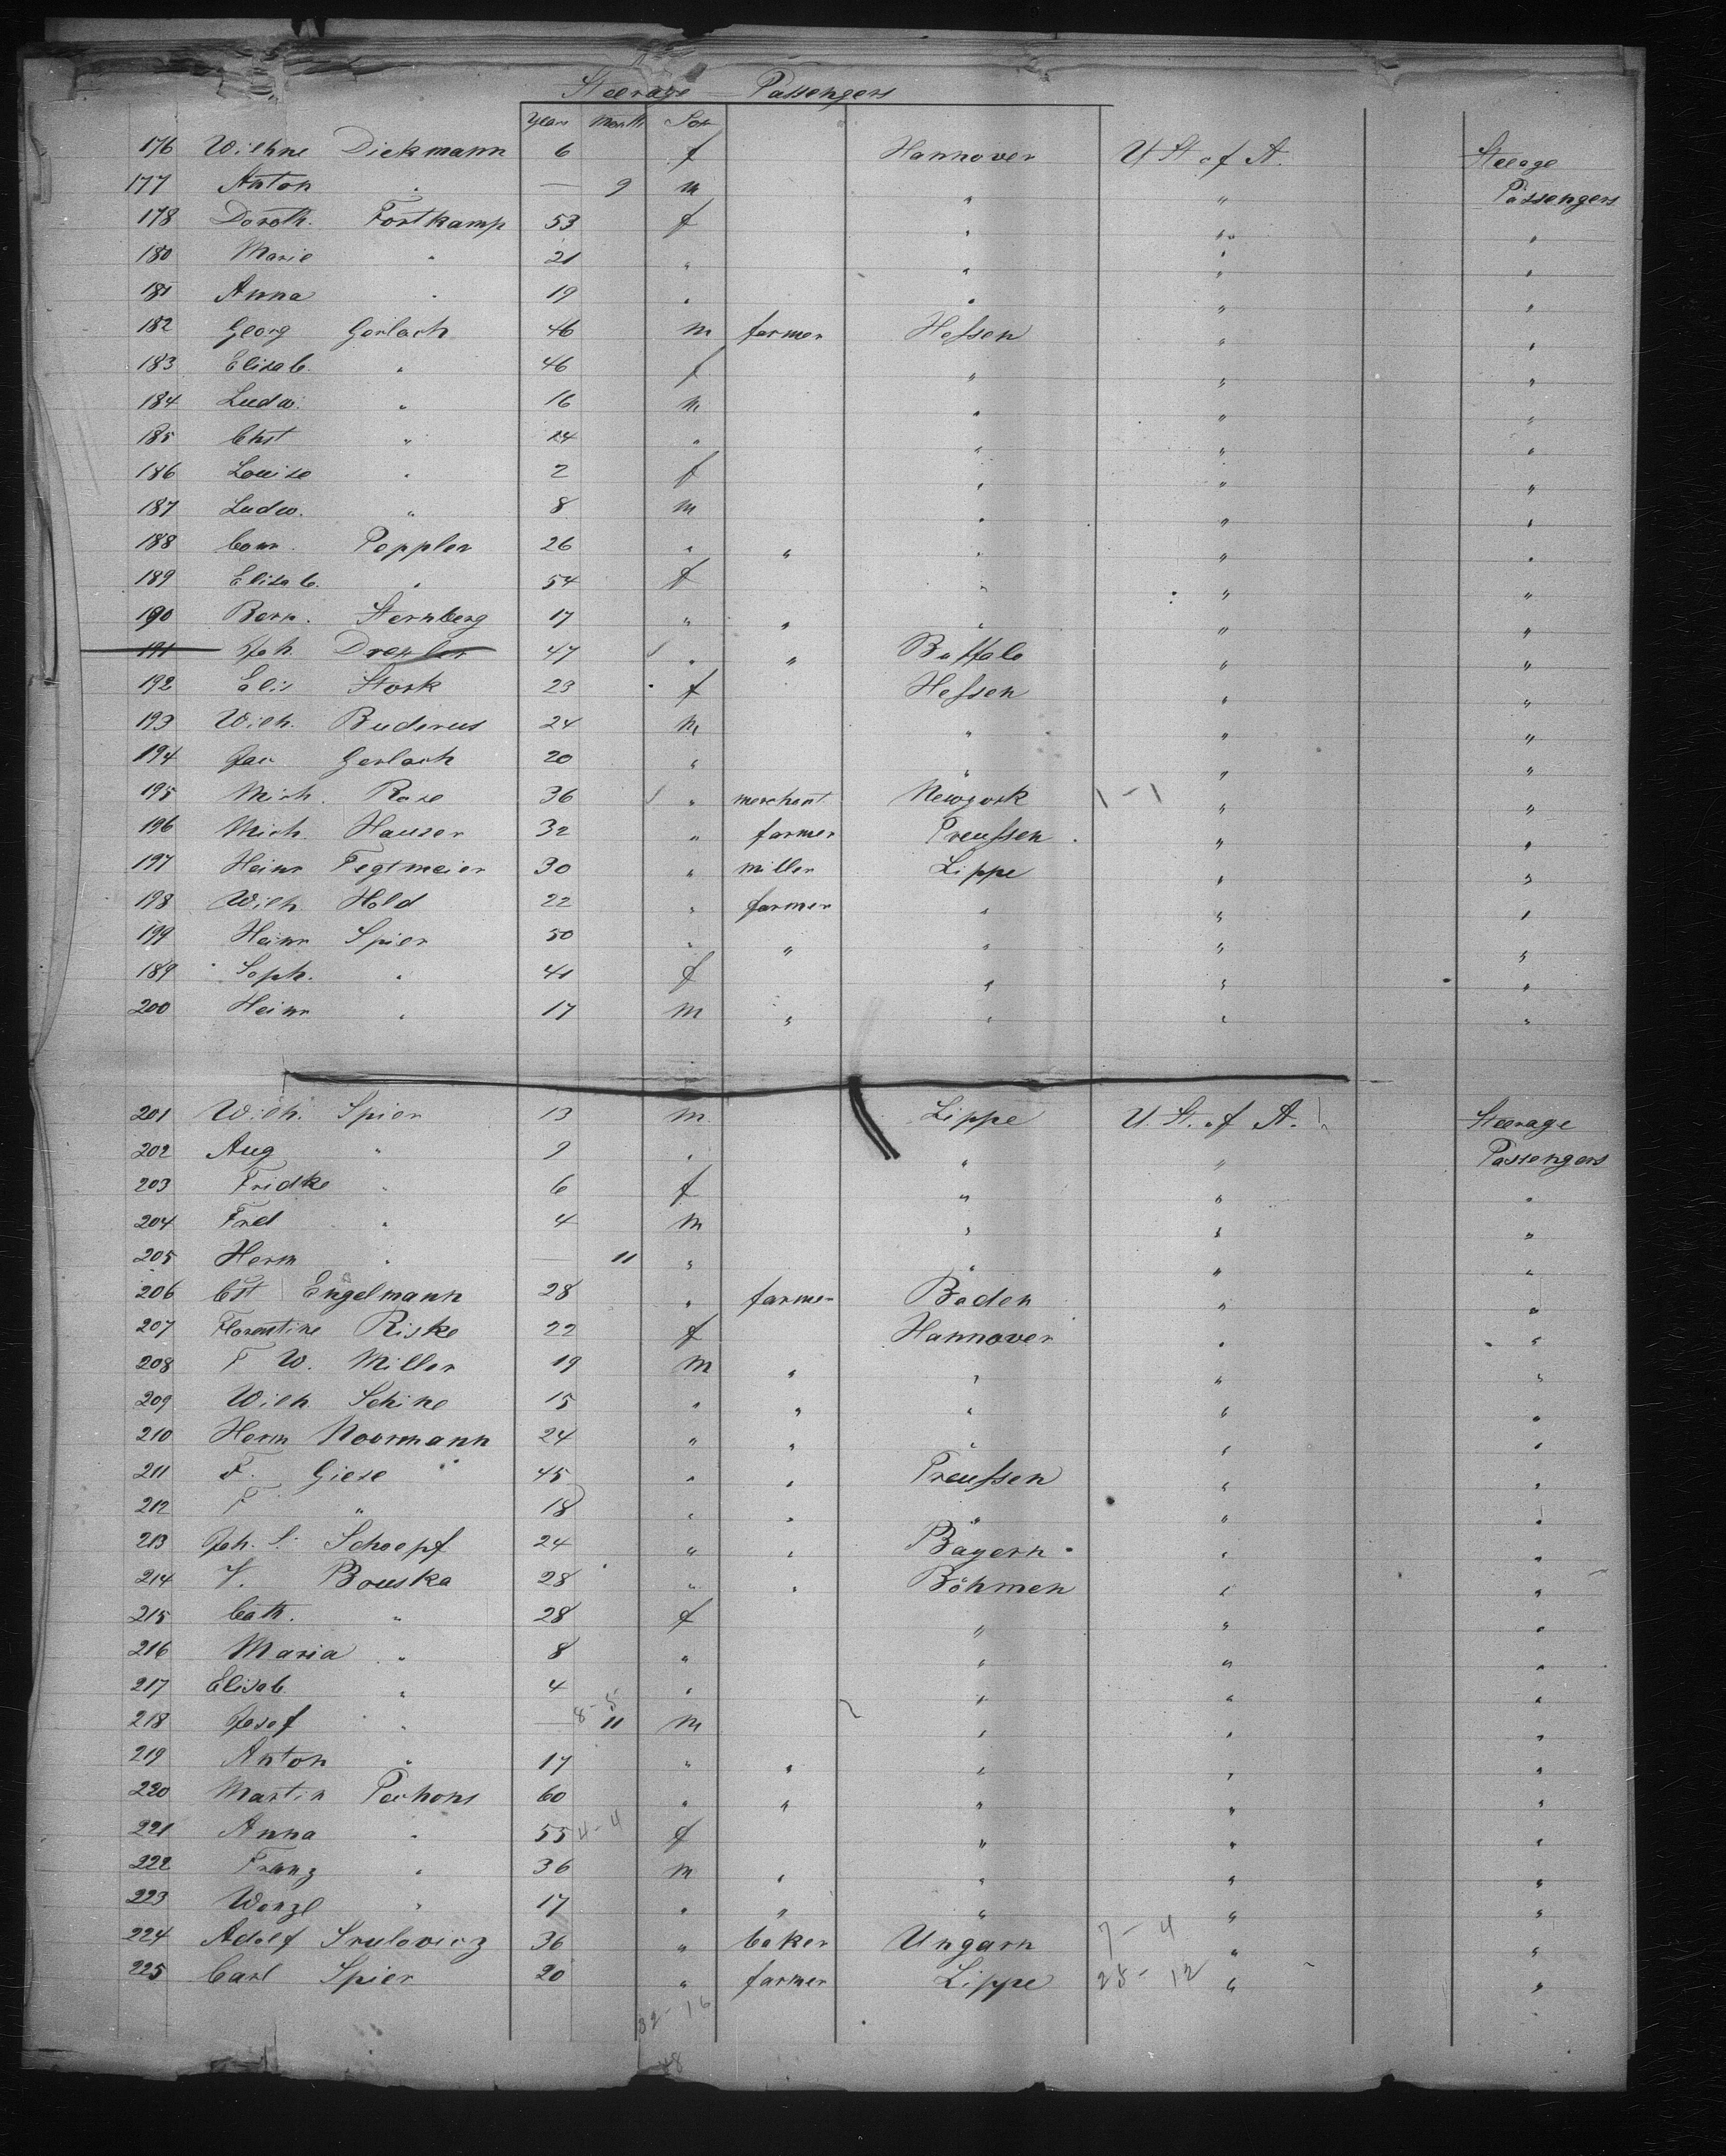 Steerage Passengers
Year Month Sex
176 Wilhne Dickmann 6 f Hannover U. St. of A. Steerage
177 Anton " — 9 m " " Passengers
178 Doroth. Fortkamp 53 f " " "
180 Marie " 21 " " " "
181 Anna " 19 " " " "
182 Georg Gerlach 46 m farmer Hessen " "
183 Elisab. " 46 f " " "
184 Ludw. " 16 m " " "
185 Chst " 14 " " " "
186 Louise " 2 f " " "
187 Ludw. " 8 m " " "
188 Conr. Peppler 26 " " " " "
189 Elisab. " 54 f " " "
190 Bern. Sternberg 17 " " " " "
191 Joh. Drexler 47 " " Buffalo " "
192 Elis Stork 23 f Hessen " "
193 Wilh. Buderus 24 m " " "
194 Jac Gerlach 20 " " " "
195 Mich. Rose 36 " merchant Newyork 1-1 " "
196 Mich. Hauser 32 " farmer Preussen " "
197 Heinr Tegtmeier 30 " miller Lippe " "
198 Wilh. Hold 22 " farmer " " "
199 Heinr Spier 50 " " " " "
189 Soph. " 41 f " " "
200 Heinr " 17 m " " " "
201 Wilh. Spier 13 m. Lippe U. St. of A. Steerage
202 Aug " 9 " " " Passengers
203 Fridke " 6 f " " "
204 Fred " 4 m " " "
205 Herm " — 11 " " " "
206 Cst Engelmann 28 " farmer Baden " "
207 Florentine Riske 22 f Hannover " "
208 F. W. Miller 19 m " " " "
209 Wilh. Schine 15 " " " " "
210 Herm Noormann 24 " " " " "
211 F. Giese 45 " " Preussen " "
212 F " 18 " " " " "
213 Joh. S. Schoepf 24 " " Bayern " "
214 V. Bouska 28 " " Böhmen " "
215 Cath. " 28 f " " "
216 Maria " 8 " " " "
217 Elisab. " 4 " " " "
218 Josef " — 8-5 11 m " " "
219 Anton " 17 " " " " "
220 Martin Pachons 60 " " " " "
221 Anna " 55 4-4 f " " "
222 Franz " 36 m " " " "
223 Wenzl " 17 " " " " "
224 Adolf Srulovicz 36 " baker Ungarn 7-4 " "
225 Carl Spier 20 " farmer Lippe 25-12 " "
32-16
48